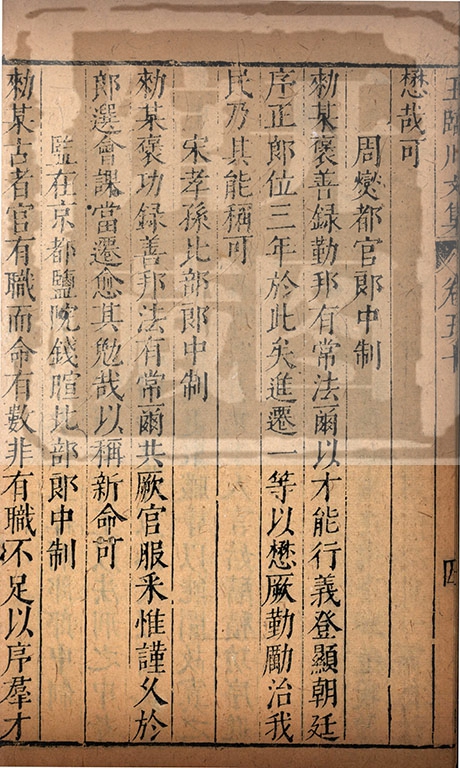 王臨川文集 卷五十 四
懋哉可
周爕都官郎中制
勑某褒善録勤邦有常法爾以才能行義登顯朝廷
序正郎位三年於此矣進遷一等以懋厥勤勵治我
民乃其能稱可
宋孝孫比部郎中制
勑某褒功録善邦法有常爾共厥官服采惟謹久於
郎選會課當遷愈其勉哉以稱新命可
監在京都鹽院錢暄比部郎中制
勑某古者官有職而命有數非有職不足以序羣才